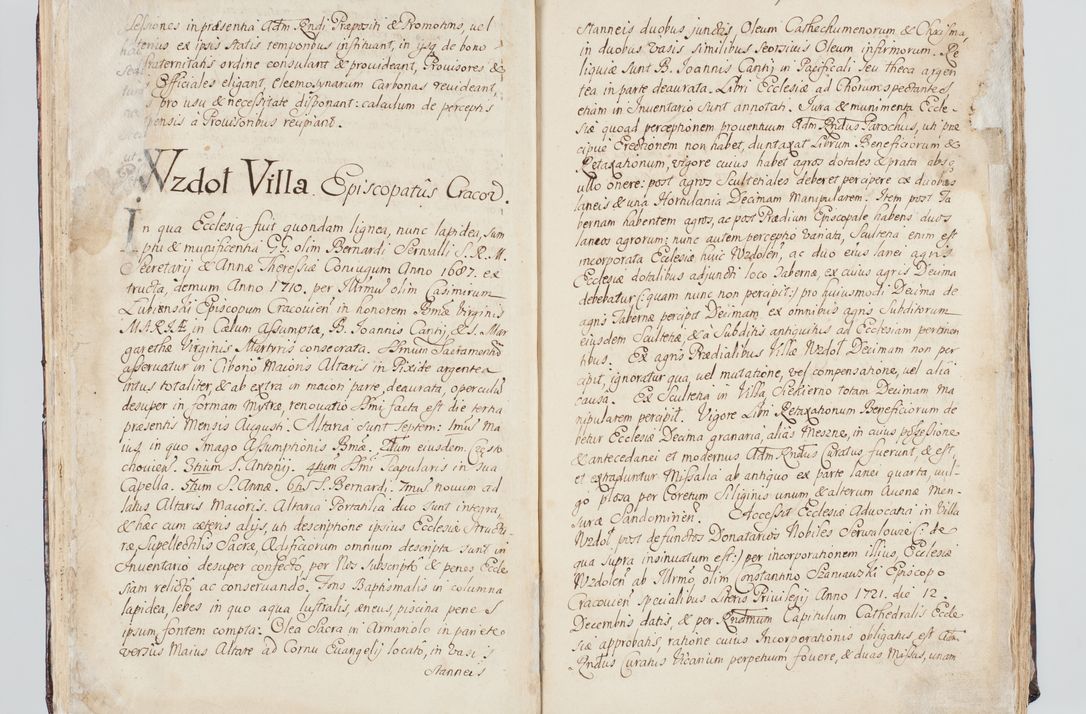 Sessiones in præsentia Adm Rndi Præpositi & Promotoris, vel
ex ipsis statis temporibus instituant, in ijsq de bono
fraternitatis ordine consulant & provideant, Provisores &
Officiales eligant, eleemosynarum Carbonas revideant,
pro usu & necessitate disponant: calculum de perceptis
à Provisoribus recipiant.
Wzdoł Villa Episcopatûs Cracov.
In qua Ecclesia fuit quondam lignea, nunc lapidea, Sum
ptu & munificentia GG. olim Bernardi Servalli S. R. M.
Secretarij & Annæ Theresiæ Coniugum Anno 1687. ex
tructa, demum Anno 1710. per Illrmũ olim Casimirum
Łubienski Episcopum Cracovien in honorem Bmæ Virginis
MARIÆ in Cælum Assumptæ, B. Ioannis Cantij & S. Mar
garethæ Virginis Martyris consecrata. Ssmum Sacramentũ
asservatur in Cibono Maioris Altaris in Pixide argentea
intus totaliter, & ab extra in maiori parte, deaurata, operculo
desuper in formam Mytræ, renovatio Ssmi facta est die tertia
præsentis Mensis Augusti. Altaria sunt septem: 1mus Ma
ius, in quo Imago Assumptionis Bmæ. 2dum eiusdem Często
choviens. 3tium S. Antonij. 4tum Ssmi Scapularis in sua
Capella. 5tum S. Annæ. 6tũ S. Bernardi. 7mus novum ad
latus Altaris Maioris. Altaria Portatilia duo sunt integra,
& hæc cum cæteris alijs, uti descriptione ipsius Ecclesiæ structu
ræ, Supellectilis Sacræ, Ædificiorum omnium descripta sunt in
Inventario desuper confecto, per Nos subscripto & penes Eccle
siam relicto ac conservando. Fons Baptismalis in columna
lapidea, lebes in quo aqua lustralis, æneus, piscina pene s
ipsum fontem compta. Olea Sacra in Armariolo in pariete
versùs Maius Altare ad Cornu Evangelij locato, in vasis
Stanneis
Stanneis duobus junctis Oleum Cathechumenorum & Chrisma,
in duobus vasis similibus seorsivis Oleum infirmorum. Re
liquiæ sunt B. Joannis Cantij in Pacificali seu theca argen
tea in parte deaurata. Libri Ecclesiæ ad Chorum spectantes,
etiam in Inventario sunt annotati. Iura & munimenta Eccle
siæ quoad perceptionem proventuum Adm Rndus Parochus, uti præ
cipue Erectionem non habet, duntaxat Librum Beneficiorum &
Retaxationum, vigore cuius habet agros dotales & prata absq
ullo onere: post agros Scultetiales deberet percipere ex duobus
laneis & una Hortulania Decimam Manipularem. Item post Ta
bernam habentem agros, ac post Prædium Episcopale habens duos
laneos agrorum: nunc autem perceptio variata, Scultetia enim est
incorporata Ecclesiæ huic Wzdolen, ac duo eius lanei agris
Ecclesiæ dotalibus adjuncti loco Tabernæ, ex cuius agris Decima
debebatur (: quam nunc non percipit :) pro huiusmodi Decima de
agris Tabernæ percipit Decimam ex omnibus agris Subditorum
eiusdem Scultetiæ, & à Subditis antiquitus ad Ecclesiam pertinen
tibus. Ex agris Prædialibus Villæ Wzdoł Decimam non per
cipit, ignoratur qua, vel mutatione, vel compensatione, vel alia
causa. Ex Scultetia in Villa Siekierno totam Decimam ma
nipularem percipit. Vigore Libri Retaxationum Beneficiorum de
betur Ecclesiæ Decima granaria, aliàs Meszne, in cuius possessione
& antecedanei et modernus Adm Rndus Curatus fuerunt, & est,
et extraduntur Missalia ab antiquo ex parte lanei quarta, vul
gò płosa per Coretum Siliginis unum, & alterum Avenæ Men
suræ Sandomirien. Accessit Ecclesiæ Advocatia in Villa
Wzdoł post defunctos Donatarios Nobiles Servalowie (: de
qua supra insinuatum est :) per incorporationem illius, Ecclesiæ
Wzdolen ab Illrmo olim Constantino Szaniawski Episcopo
Cracovien specialibus Literis Privilegij Anno 1721. die 12.
Decembris datis, & per Rndmum Capitulum Cathedralis Eccle
siæ approbatis, ratione cuius Incorporationis obligatus est Adm
Rndus Curatus Vicarium perpetuum fovere, & duas Missas, unam